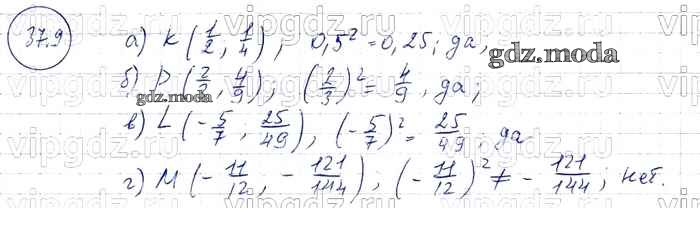 37.9
а) K (1/2; 1/4), 0,5² = 0,25; да,
б) P (2/3, 4/9); (2/3)² = 4/9, да;
в) L (-5/7; 25/49), (-5/7)² = 25/49; да
г) M (-11/12, -121/144); (-11/12)² ≠ -121/144; нет.
gdz.moda
gdz.moda
vipgdz.com